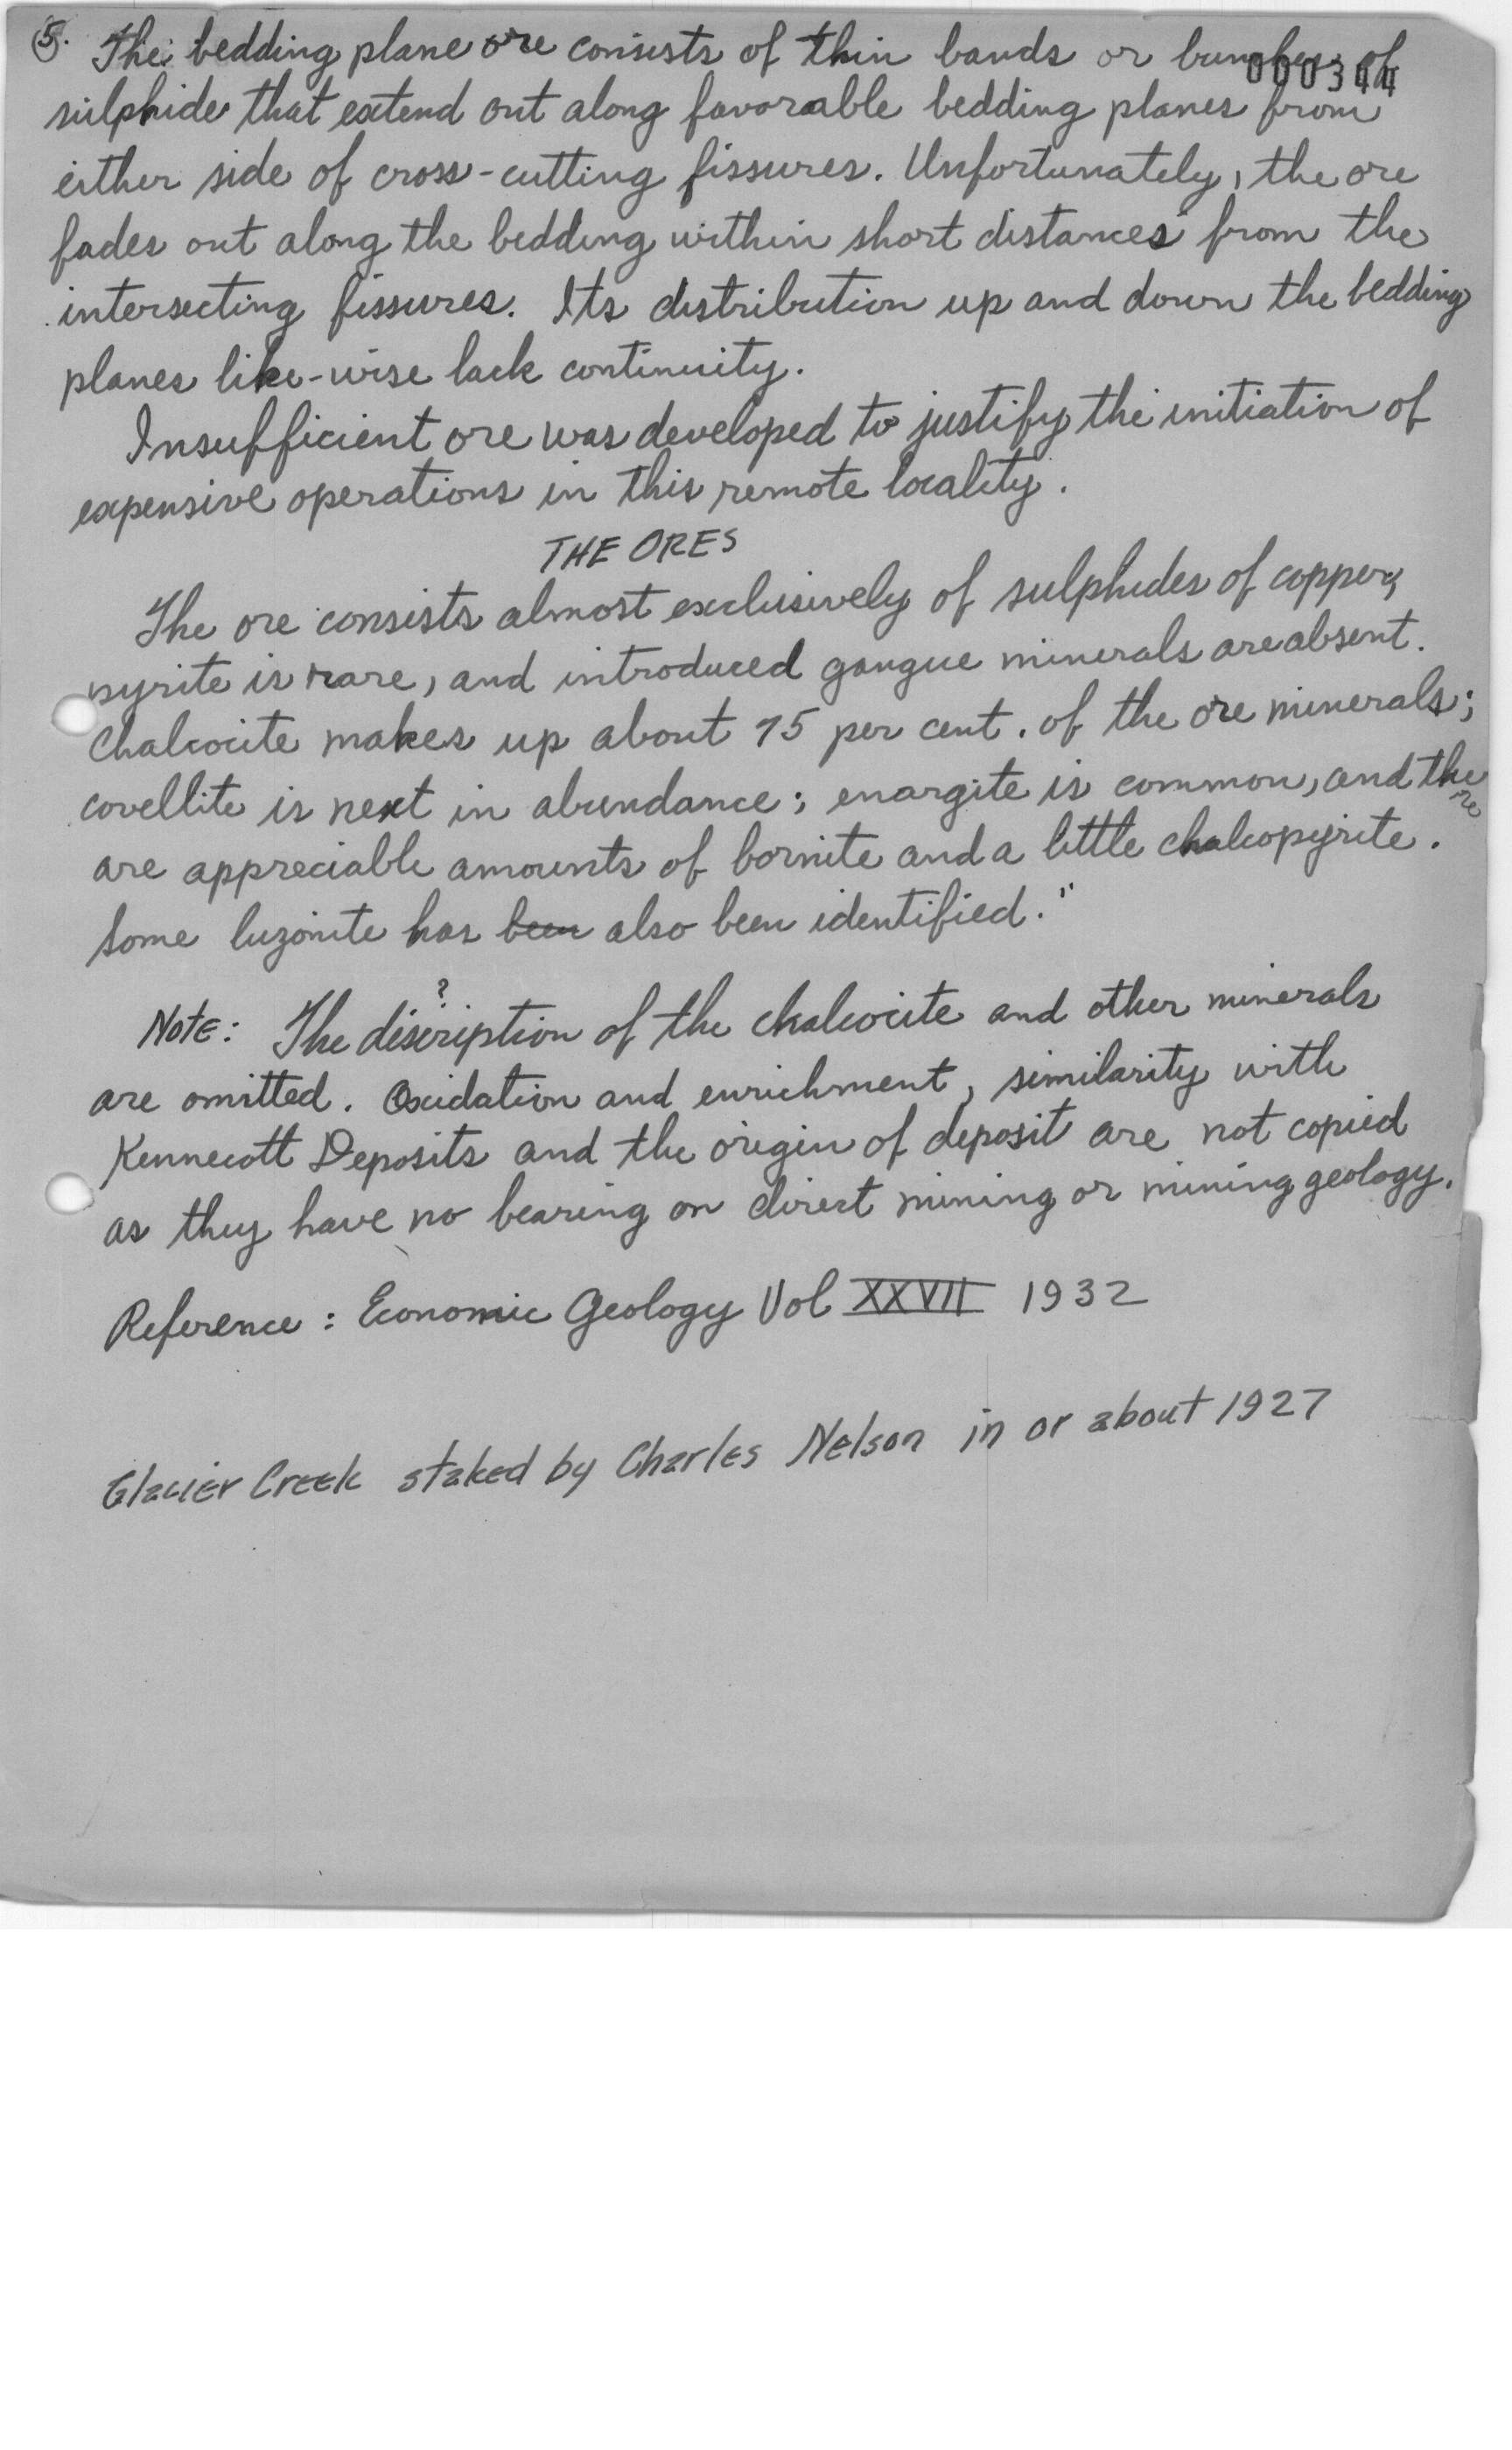 5. The bedding plane ore consists of thin bands or bunches of
000344
sulphide that extend out along favorable bedding planes from
either side of cross-cutting fissures. Unfortunately, the ore
fades out along the bedding within short distances from the
intersecting fissures. Its distribution up and down the bedding
planes like-wise lack continuity.
Insufficient ore was developed to justify the initiation of
expensive operations in this remote locality.
THE ORES
The ore consists almost exclusively of sulphides of copper;
pyrite is rare, and introduced gangue minerals are absent.
Chalcocite makes up about 75 per cent. of the ore minerals;
covellite is next in abundance; enargite is common, and there
are appreciable amounts of bornite and a little chalcopyrite.
Some luzonite has been also been identified."
?
Note: The discription of the chalcocite and other minerals
are omitted. Oxidation and enrichment, similarity with
Kennecott Deposits and the origin of deposit are not copied
as they have no bearing on direct mining or mining geology.
Reference: Economic Geology Vol XXVII 1932
Glacier Creek staked by Charles Nelson in or about 1927